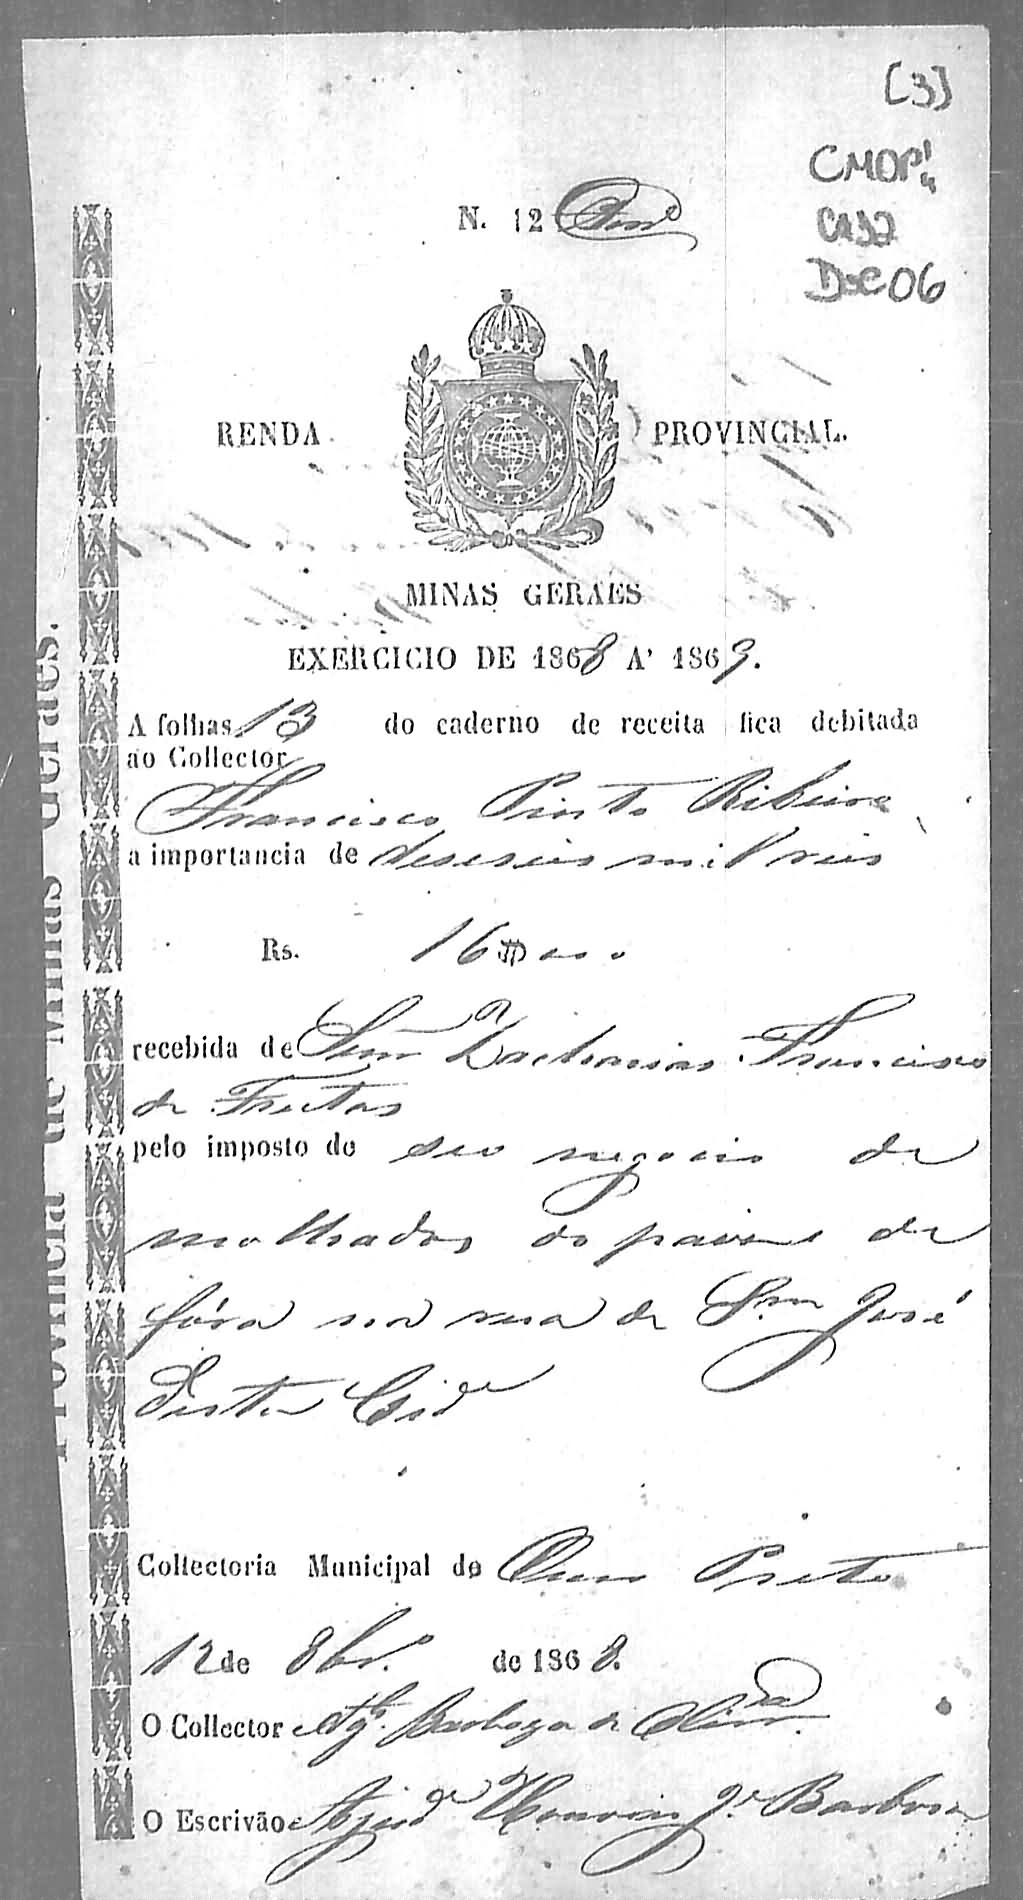 [3]
CMOP
Cx32
Doc06
N. 12
RENDA PROVINCIAL.
MINAS GERAES
EXERCICIO DE 1868 A' 1869.
A folhas 13 do caderno de receita fica debitada
ao Collector
Francisco Pinto Ribeiro
a importancia de deseseis mil reis
Rs. 16$000
recebida de Zacharias Francisco
de Freitas
pelo imposto de seu negocio de
molhados do paiz e de
fóra na rua de Sm José
desta Cide
Collectoria Municipal de Ouro Preto
12 de 8br.o de 1868.
O Collector Barboza de Olivra.
O Escrivão Ajude Barbosa
Provincia de Minas Geraes.